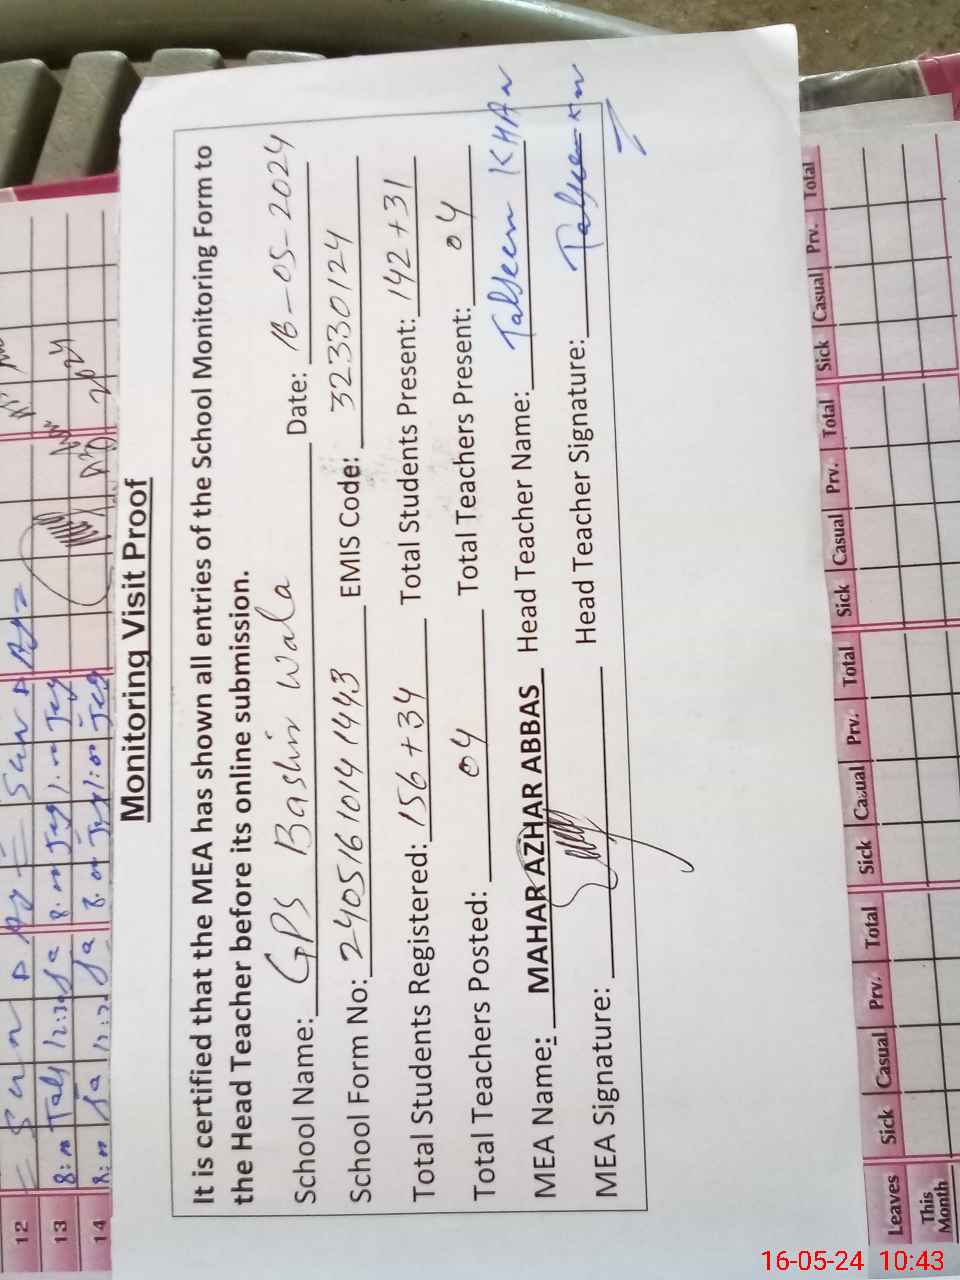 Monitoring Visit Proof
It is certified that the MEA has shown all entries of the School Monitoring Form to
the Head Teacher before its online submission.
School Name: GPS Bashir Wala Date: 16-05-2024
School Form No: 24051610141443 EMIS Code: 32330124
Total Students Registered: 156+34 Total Students Present: 142+31
Total Teachers Posted: 04 Total Teachers Present: 04
MEA Name: MAHAR AZHAR ABBAS Head Teacher Name: KHAN
MEA Signature: Head Teacher Signature:
12
13
14
2024
Leaves Sick Casual Prv. Total Sick Casual Prv. Total Sick Casual Prv. Total Sick Casual Prv. Total
This
Month
16-05-24 10:43